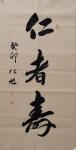 仁者壽
癸卯